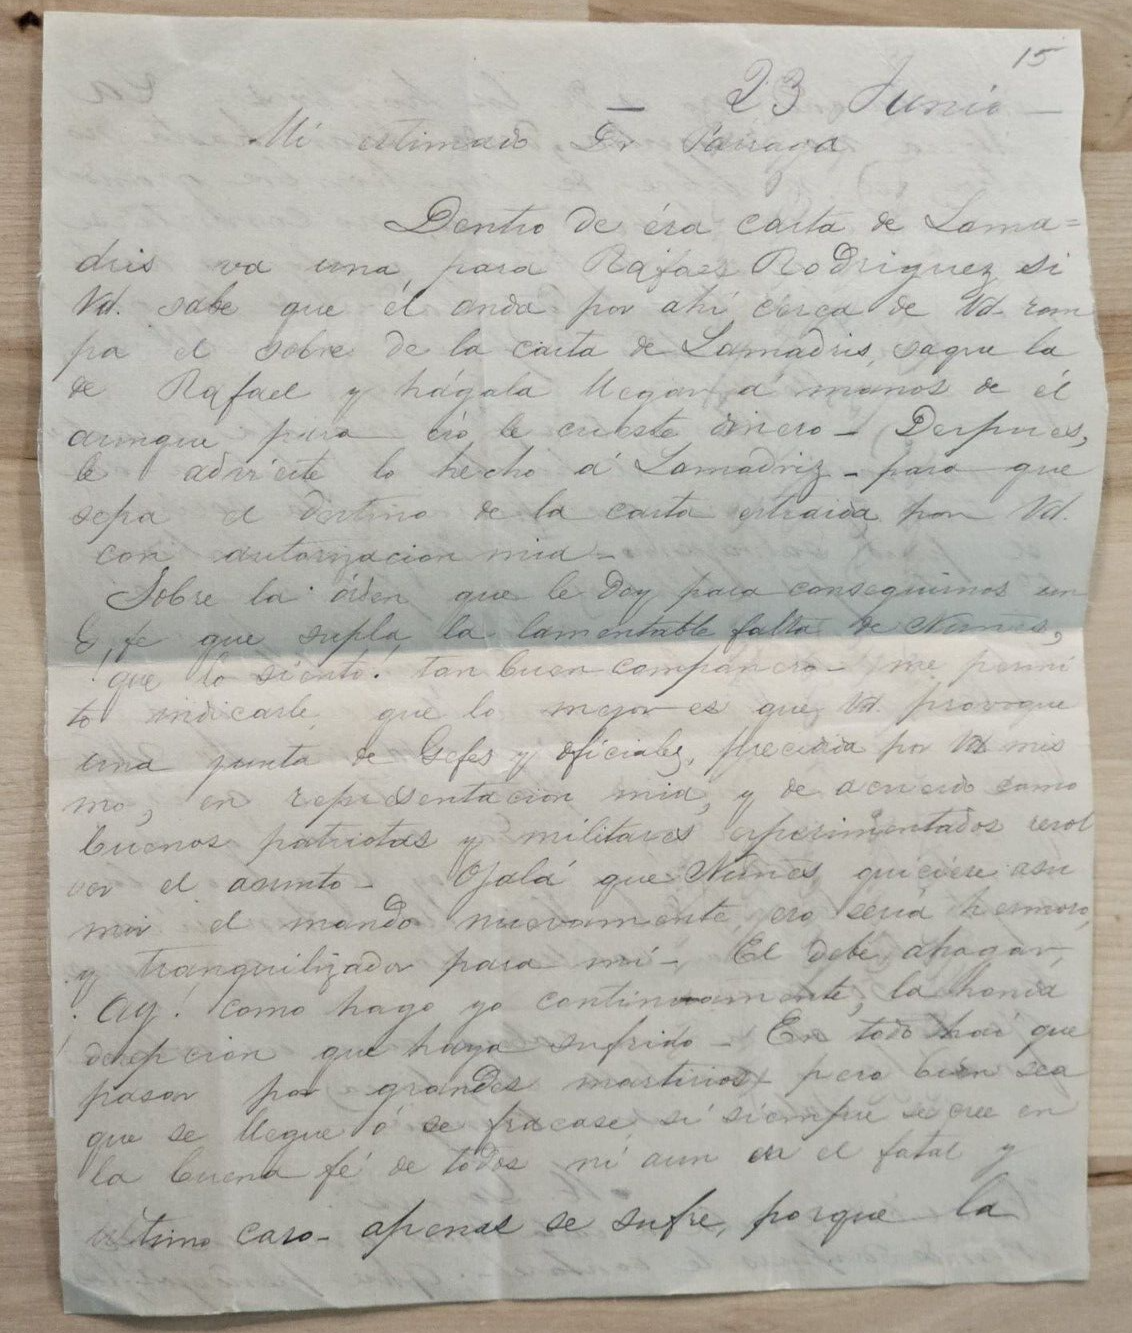 15
- 23 Junio -
Mi estimado Dr Párraga
Dentro de ésa carta de Lama=
dris va una para Rafáes Rodriguez si
Vd. sabe que él anda por ahí cérca de Vd rom
pa el sobre de la carta de Lamadris, saque la
de Rafael y hágala llegar á manos de él
aunque para éso le cueste dinero - Despues,
le advierte lo hecho á Lamadriz - para que
sepa el destino de la carta estraida por Vd.
con autorizacion mia -
Sobre la órden que le doy para conseguirnos un
Géfe que supla la lamentable falta de Nuñes,
¡que lo siento! tan buen compañero - me permi
to indicarle que lo mejor es que Vd. provoque
una junta de Gefes y oficiales, precidida por Vd mis
mo, en representacion mia, y de acuerdo como
buenos patriotas y militares esperimentados resol
ver el asunto - Ojalá que Nuñes quiciere asu
mir el mando nuevamente, eso sería hermoso,
y tranquilizador para mí - El debe ahogar,
¡Ay! como hago yo continuamente, la honda
decepcion que haya sufrido - En todo hai que
pasar por grandes martirios - pero bien sea
que se llegue ó se fracase si siempre se cree en
la buena fé de todos ni aun en el fatal y
ultimo caso - apenas se sufre, porque la